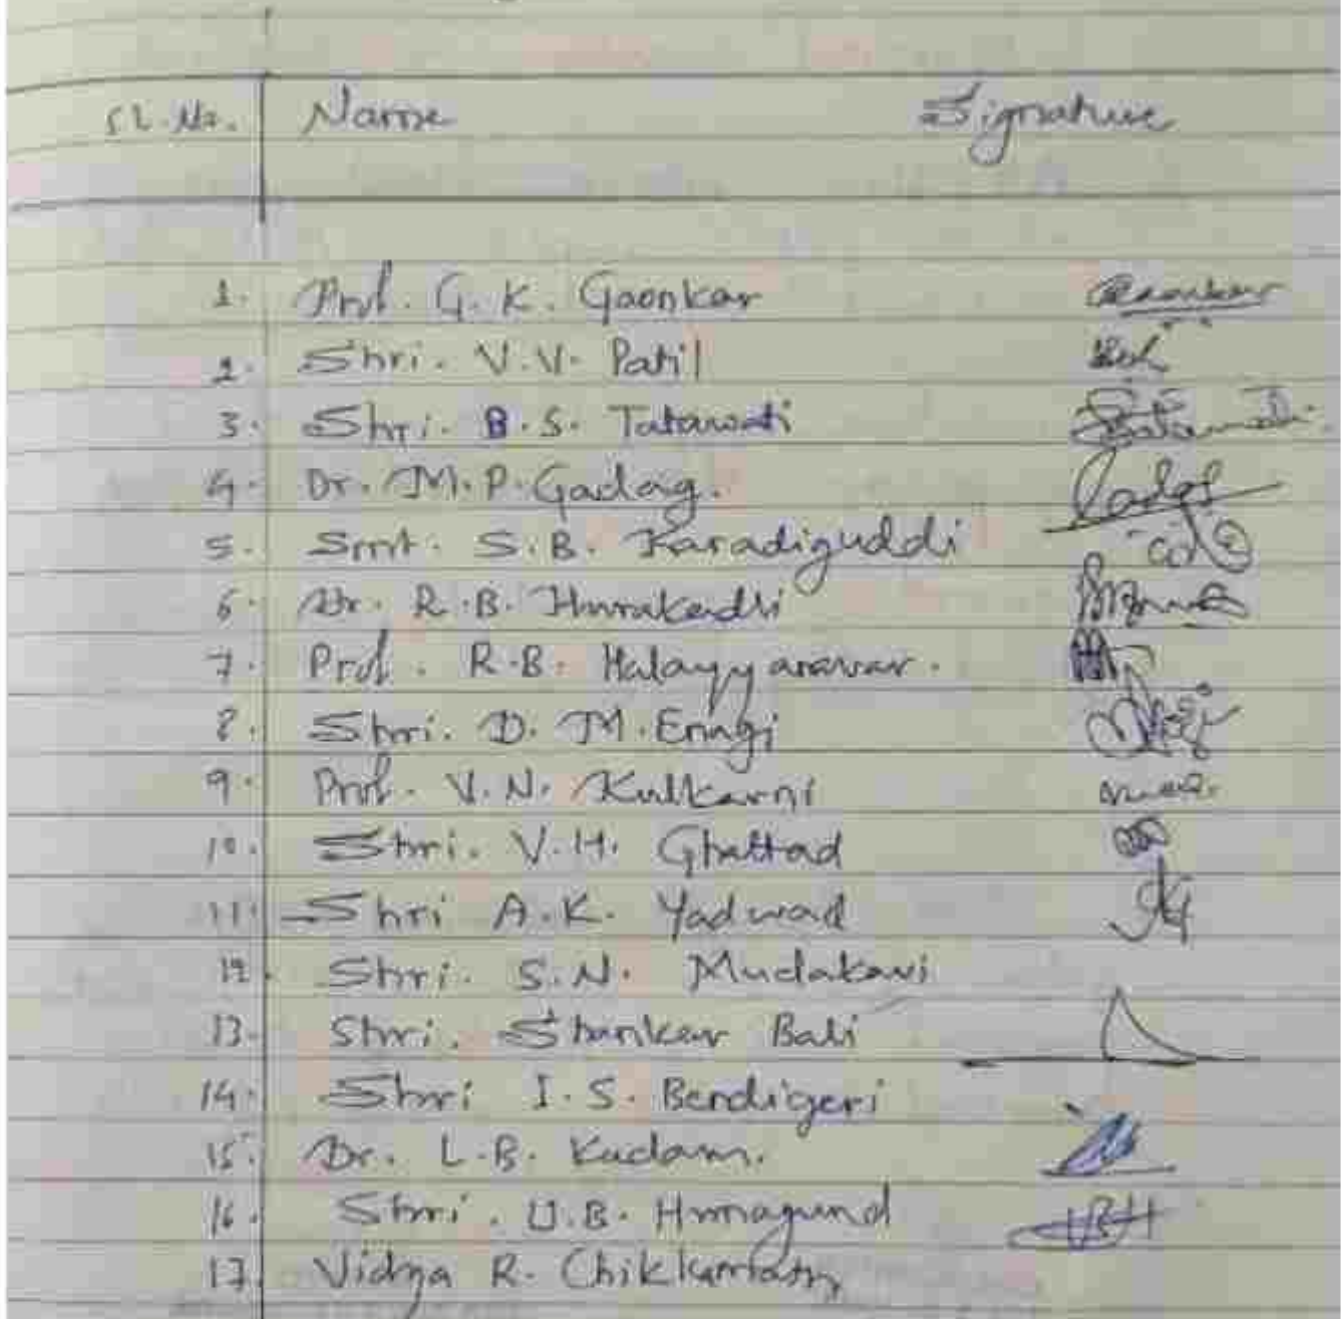 Sl. No. Name Signature
1. Prof. G. K. Gaonkar Gaonkar
2. Shri. V.V. Patil
3. Shri. B.S. Tatawati
4. Dr. M.P. Gadag. Gadag
5. Smt. S.B. Karadiguddi
6. Dr. R.B.
7. Prof. R.B. Halayyanavar.
8. Shri. D. M. Eringi
9. Prof. V.N. Kulkarni
10. Shri. V.H. Ghattad
11. Shri A.K. Yadwad
12. Shri. S.N. Mudakavi
13. Shri. Shankar Bali
14. Shri I.S. Bendigeri
15. Dr. L.B. Kadam.
16. Shri. U.B. Hunagund UBH
17. Vidya R. Chikkamath